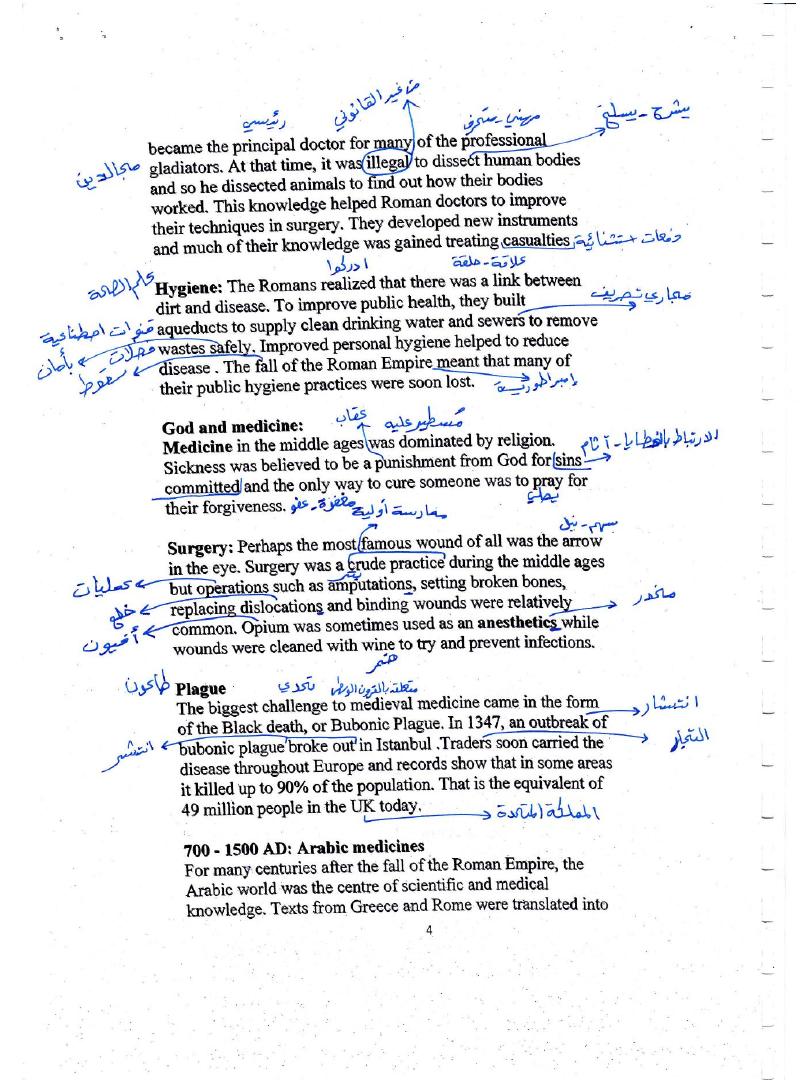 من غير القانوني
رئيسي
مهني - محترف
يشرح - يسلخ
became the principal doctor for many of the professional
gladiators. At that time, it was illegal to dissect human bodies
and so he dissected animals to find out how their bodies
worked. This knowledge helped Roman doctors to improve
their techniques in surgery. They developed new instruments
and much of their knowledge was gained treating casualties
دفعات استثنائية
علاقة - حلقة
ادركوا
علم الصحة
Hygiene: The Romans realized that there was a link between
dirt and disease. To improve public health, they built
مجاري تصريف
aqueducts to supply clean drinking water and sewers to remove
قنوات اصطناعية
wastes safely. Improved personal hygiene helped to reduce
فضلات
بأمان
disease . The fall of the Roman Empire meant that many of
سقوط
their public hygiene practices were soon lost.
إمبراطورية
God and medicine:
عقاب
مُسطير عليه
Medicine in the middle ages was dominated by religion.
الارتباط بالخطايا - آثام
Sickness was believed to be a punishment from God for sins
committed and the only way to cure someone was to pray for
يصلي
their forgiveness.
مغفرة - عفو
ممارسة أولية
سهم - نبل
Surgery: Perhaps the most famous wound of all was the arrow
in the eye. Surgery was a crude practice during the middle ages
but operations such as amputations, setting broken bones,
عمليات
بتر
replacing dislocations and binding wounds were relatively
خلع
مخدر
common. Opium was sometimes used as an anesthetics while
أفيون
wounds were cleaned with wine to try and prevent infections.
خمر
Plague
طاعون
تحدي
متعلقة بالقرون الوسطى
The biggest challenge to medieval medicine came in the form
انتشار
of the Black death, or Bubonic Plague. In 1347, an outbreak of
التجار
bubonic plague broke out in Istanbul .Traders soon carried the
انتشر
disease throughout Europe and records show that in some areas
it killed up to 90% of the population. That is the equivalent of
49 million people in the UK today.
المملكة المتحدة
700 - 1500 AD: Arabic medicines
For many centuries after the fall of the Roman Empire, the
Arabic world was the centre of scientific and medical
knowledge. Texts from Greece and Rome were translated into
4